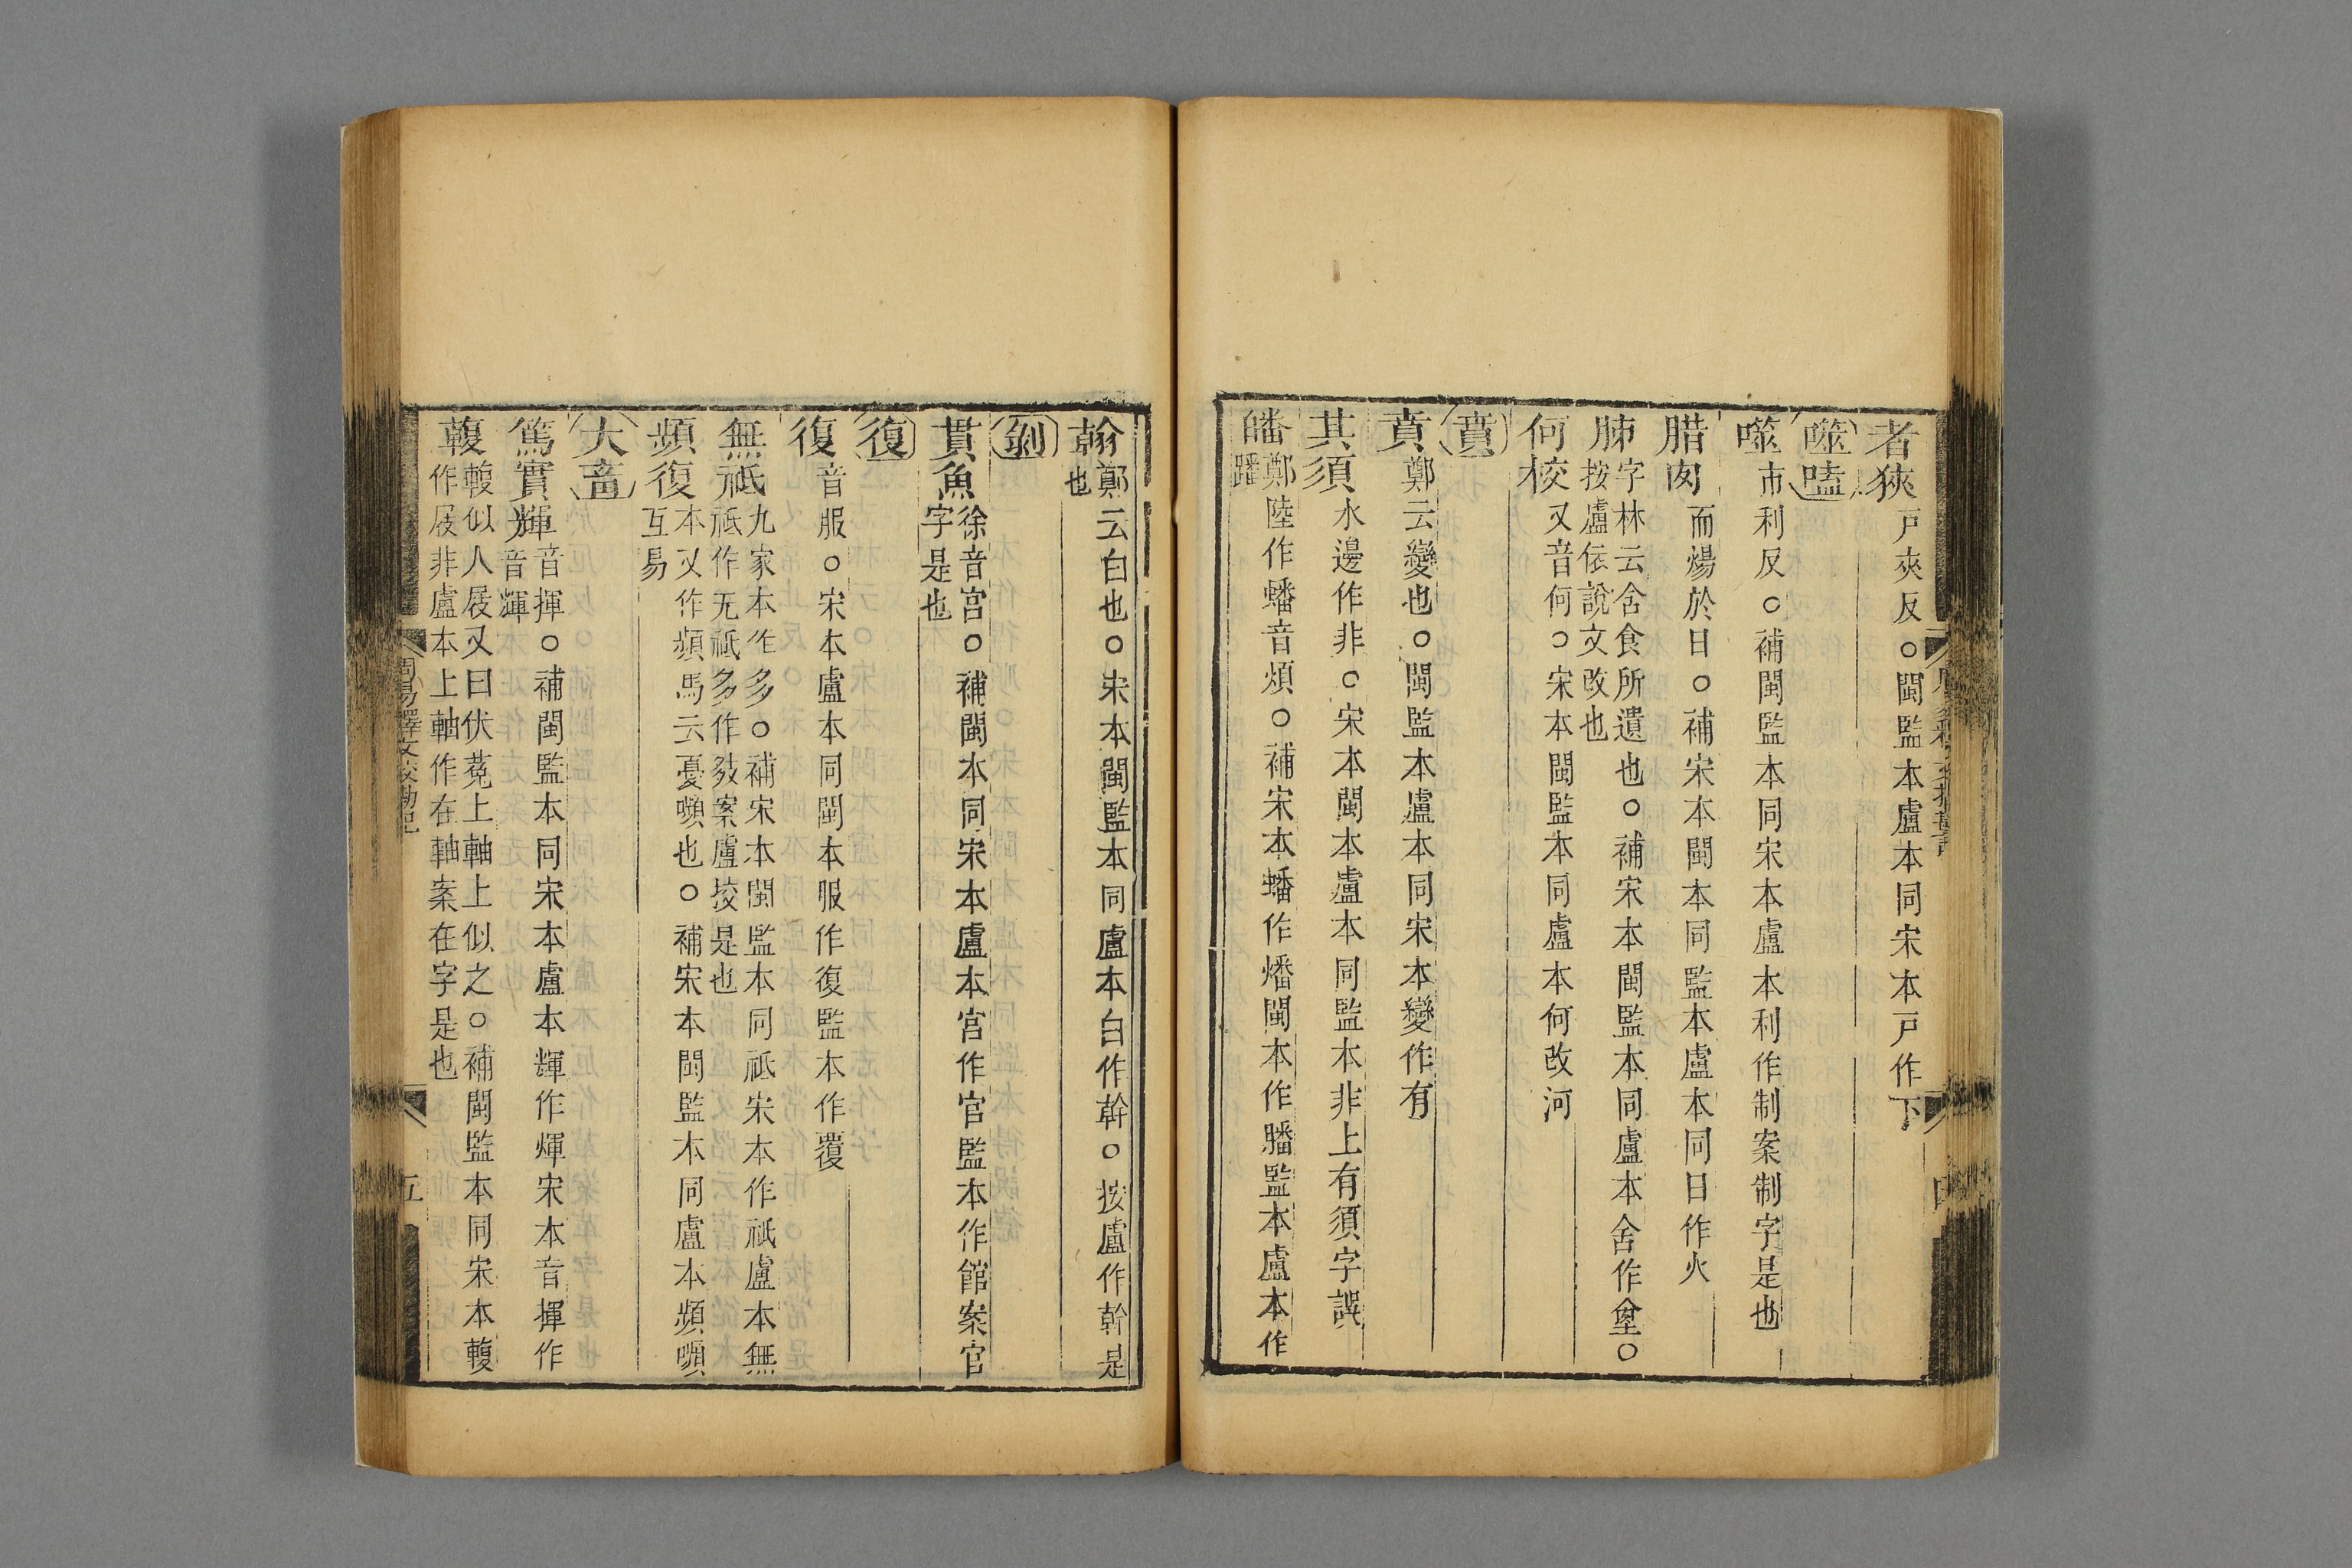 者狹戸夾反○閩監本盧本同宋本戸作下
噬嗑
噬市利反○補閩監本同宋本盧本利作制案制字是也
腊肉而煬於日○補宋本閩本同監本盧本同日作火
胏字林云含食所遺也○補宋本閩監本同盧本含作𡌶○
按盧依說文改也
何校又音何○宋本閩監本同盧本何改河
賁
賁鄭云變也○閩監本盧本同宋本變作有
其須水邊作非○宋本閩本盧本同監本非上有須字誤
皤鄭陸作蟠音煩○補宋本蟠作燔閩本作膰監本盧本作
蹯
翰鄭云白也○宋本閩監本同盧本白作幹○按盧作幹是
也
剝
貫魚徐音宮○補閩本同宋本盧本宮作官監本作館案官
字是也
復
復音服○宋本盧本同閩本服作復監本作覆
無祗九家本作多○補宋本閩監本同祗宋本作祇盧本無
祗作无祇多作𢼊案盧挍是也
頻復本又作嚬馬云憂嚬也○補宋本閩監本同盧本頻嚬
互易
大畜
篤實輝音揮○補閩監本同宋本盧本輝作煇宋本音揮作
光音輝
輹輹似人屐又曰伏菟上軸上似之○補閩監本同宋本輹
作屐非盧本上軸作在軸案在字是也
周易釋文挍勘記
五